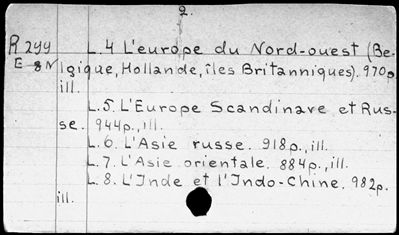 2.
R 299 L.4 L'europe du Nord-ouest (Be-
E 8N lgique, Hollande, îles Britanniques). 970p
ill.
L.5. L'Europe Scandinave et Rus-
se. 944p., ill.
L.6. L'Asie russe. 918p., ill.
L.7. L'Asie orientale. 884p., ill.
L.8. L'Inde et l'Indo-Chine. 982p.
ill.